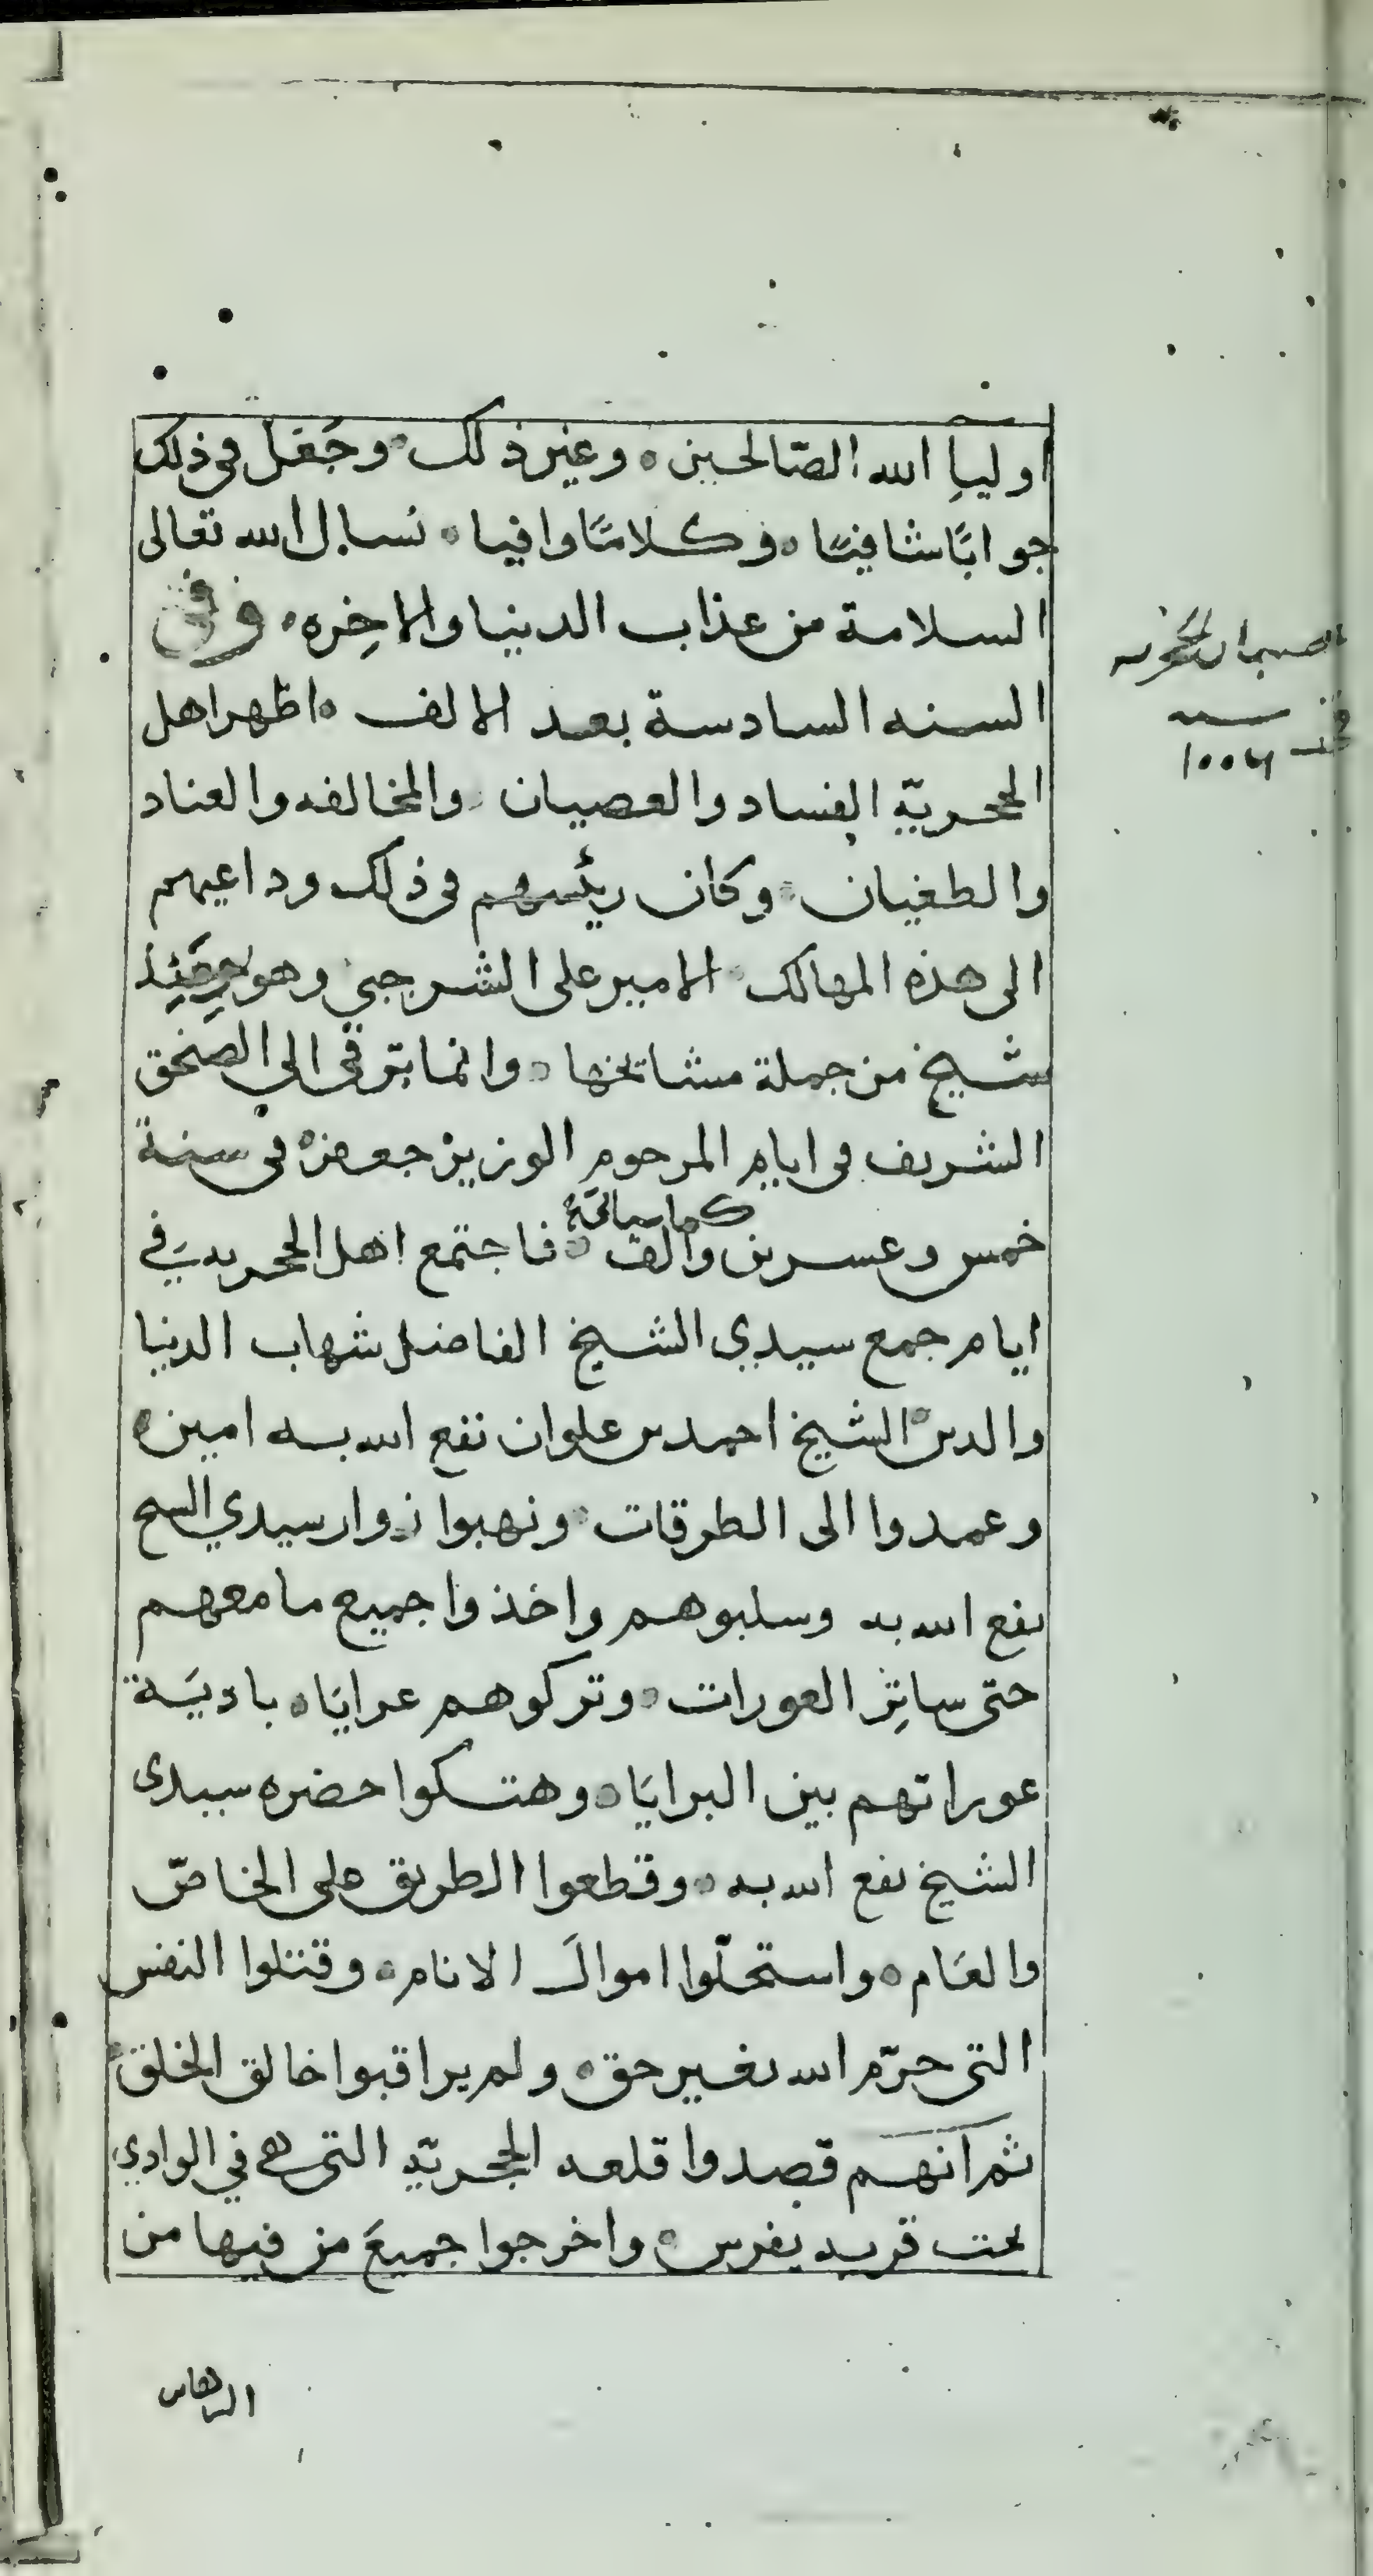 اولياِ الله الصّالحين ه وغير ذلك وجَعَل في ذلك
جوابًا شافيًا ه وكلامًا وافيا ه نسال الله تعالى
السلامة من عذاب الدنيا والاخِره ه وفي
السنه السادسة بعد الالف ه اظهر اهل
الحجريّة الفساد والعصيان والمخالفه والعناد
والطغيان وكان رئسهم في ذلك وداعيهم
الى هذه المهالك الامير على الشرجبي وهو حِينَئِذ
شيخ من جملة مشايخها ه وانما ترقى الى الصنجق
الشريف في ايام المرحوم الوزير جعفر ه في سنة
خمس وعسرين والف ه فاجتمع اهل الحجريه في
ايام جمع سيدي الشيخ الفاضل شهاب الدنيا
والدين الشيخ احمد بن علوان نفع الله به امين ه
وعمدوا الى الطرقات ونهبوا زوار سيدي السح
نفع الله به وسلبوهم واخذوا جميع ما معهم
حتى ساتِر العورات ه وتركوهم عرايَا ه باديَة
عوراتهم بين البرايَا ه وهتكوا حضره سيدى
الشيخ نفع الله به ه وقطعوا الطريق على الخاصّ
والعَام ه واستحلّوا اموالَ الانام ه وقتلوا النفس
التى حرّم الله بغير حق ه ولم يراقبوا خالق الخلق
ثم انهم قصدوا قلعه الحجريّه التى هي في الوادي
تحت قريه يفرس ه واخرجوا جميعَ من فيها من
سنه
١٠٠٦